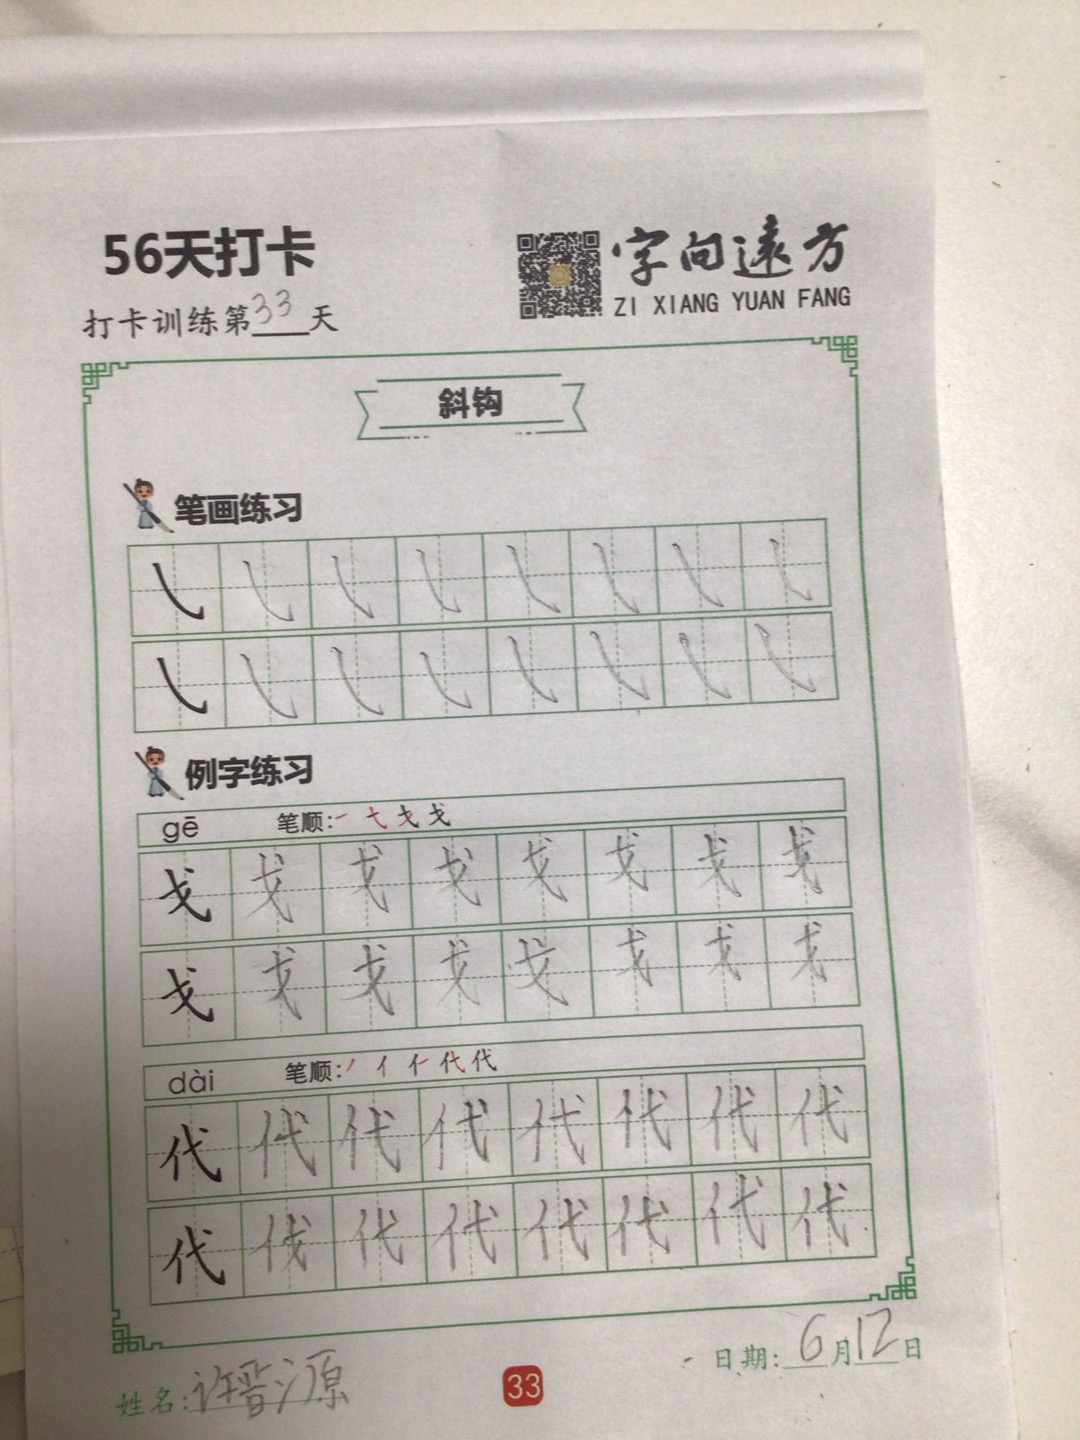 56天打卡
字向遠方
ZI XIANG YUAN FANG
打卡训练第33天
斜钩
笔画练习
㇂ ㇂ ㇂ ㇂ ㇂ ㇂ ㇂ ㇂
㇂ ㇂ ㇂ ㇂ ㇂ ㇂ ㇂ ㇂
例字练习
gē 笔顺:
戈 戈 戈 戈 戈 戈 戈 戈
戈 戈 戈 戈 戈 戈 戈 戈
dài 笔顺:
代 代 代 代 代 代 代 代
代 伐 代 代 代 代 代 代
日期:6月12日
姓名:许晋源
33